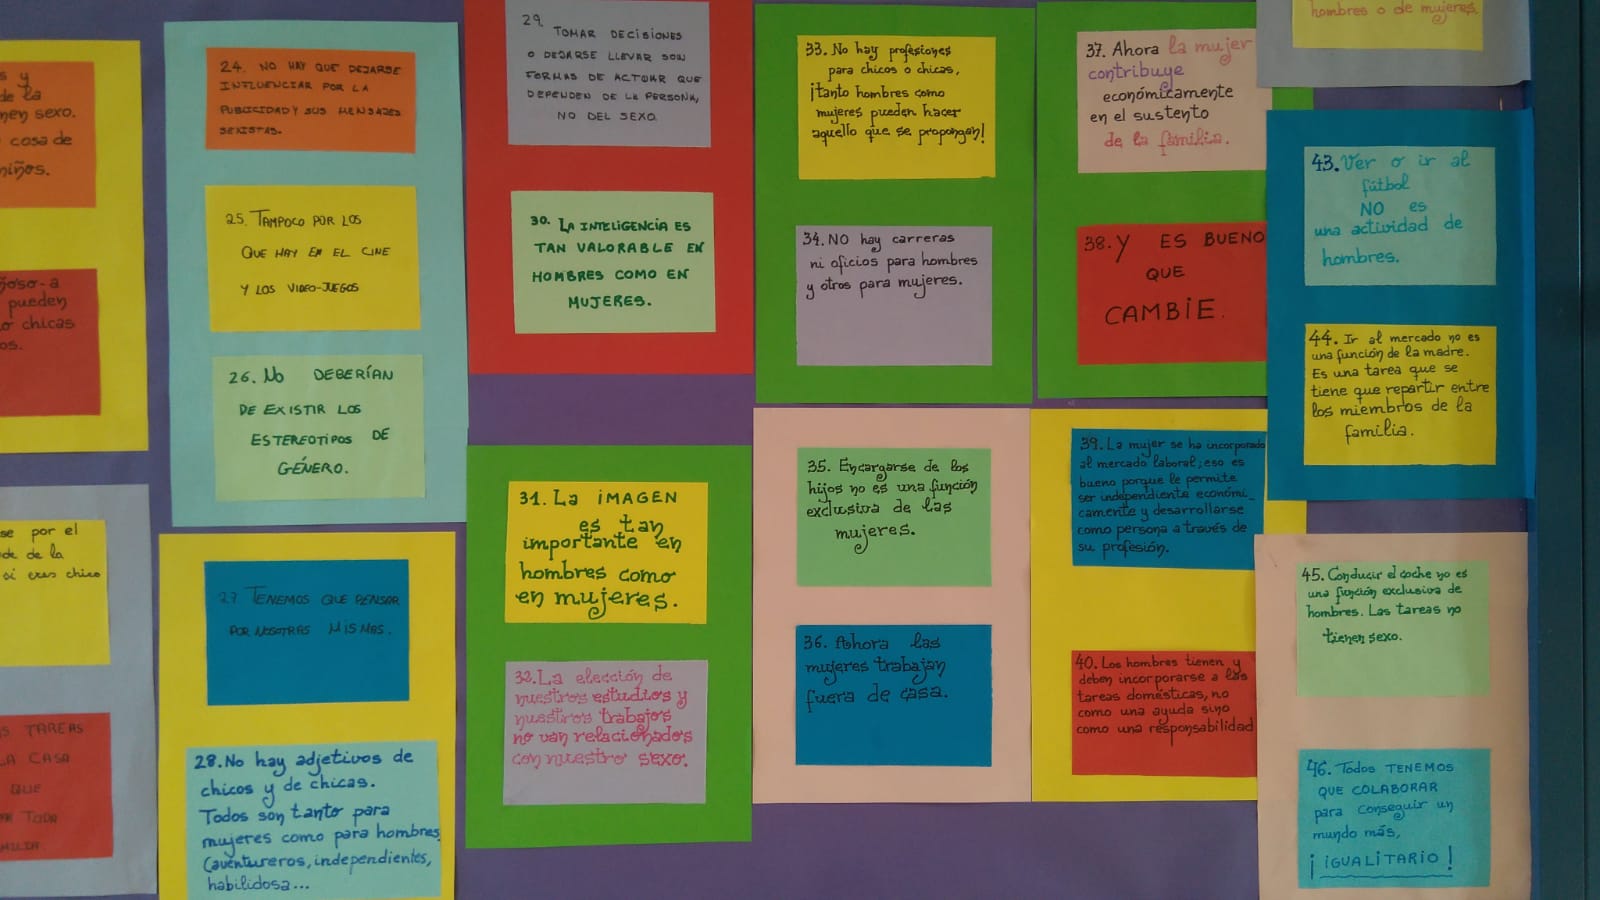 s y
de la
nen sexo.
cosa de
niños.
ñoso-a
pueden
o chicas
os.
se por el
de de la
si eres chico
S TAREAS
LA CASA
QUE
TODA
MILIA.
24. NO HAY QUE DEJARSE
INFLUENCIAR POR LA
PUBLICIDAD Y SUS MENSAJES
SEXISTAS.
25. TAMPOCO POR LOS
QUE HAY EN EL CINE
Y LOS VIDEO-JUEGOS
26. NO DEBERÍAN
DE EXISTIR LOS
ESTEREOTIPOS DE
GÉNERO.
27. TENEMOS QUE PENSAR
POR NOSOTRAS MISMAS.
28. No hay adjetivos de
chicos y de chicas.
Todos son tanto para
mujeres como para hombres
(aventureros, independientes,
habilidosa...
29. TOMAR DECISIONES
O DEJARSE LLEVAR SON
FORMAS DE ACTUAR QUE
DEPENDEN DE LA PERSONA,
NO DEL SEXO.
30. LA INTELIGENCIA ES
TAN VALORABLE EN
HOMBRES COMO EN
MUJERES.
31. La IMAGEN
es tan
importante en
hombres como
en mujeres.
32. La elección de
nuestros estudios y
nuestros trabajos
no van relacionados
con nuestro sexo.
33. No hay profesiones
para chicos o chicas,
¡tanto hombres como
mujeres pueden hacer
aquello que se propongan!
34. NO hay carreras
ni oficios para hombres
y otros para mujeres.
35. Encargarse de los
hijos no es una función
exclusiva de las
mujeres.
36. Ahora las
mujeres trabajan
fuera de casa.
37. Ahora la mujer
contribuye
económicamente
en el sustento
de la familia.
38. Y ES BUENO
QUE
CAMBIE.
39. La mujer se ha incorporado
al mercado laboral; eso es
bueno porque le permite
ser independiente económi_
camente y desarrollarse
como persona a través de
su profesión.
40. Los hombres tienen y
deben incorporarse a las
tareas domésticas, no
como una ayuda sino
como una responsabilidad
hombres o de mujeres.
43. Ver o ir al
fútbol
NO es
una actividad de
hombres.
44. Ir al mercado no es
una función de la madre.
Es una tarea que se
tiene que repartir entre
los miembros de la
familia.
45. Conducir el coche no es
una función exclusiva de
hombres. Las tareas no
tienen sexo.
46. Todos TENEMOS
QUE COLABORAR
para conseguir un
mundo más,
¡IGUALITARIO!